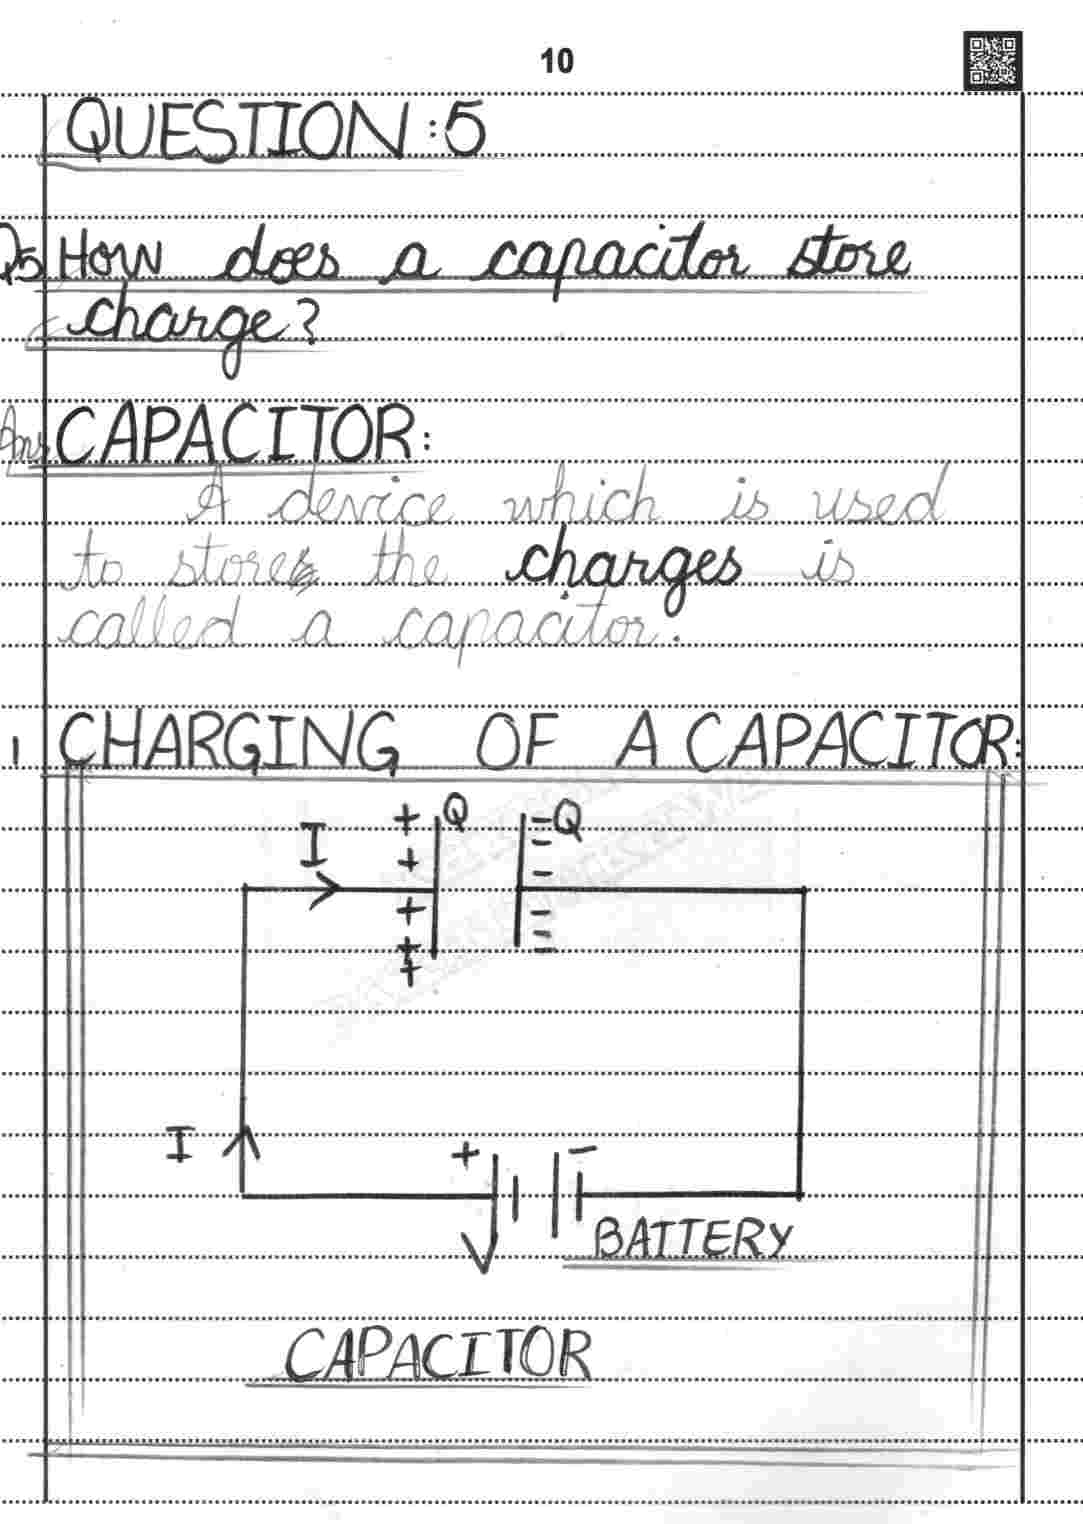 10
QUESTION :5
Q5 How does a capacitor store
charge?
Ans CAPACITOR:
A device which is used
to store the charges is
called a capacitor.
1 CHARGING OF A CAPACITOR:
+ Q - Q
I
I
+ -
V
BATTERY
CAPACITOR